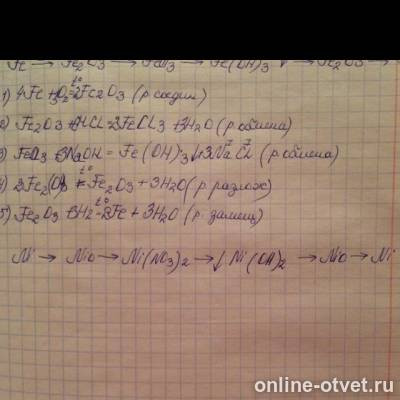 Fe → Fe₂O₃ → FeCl₃ → Fe(OH)₃ ↓ → Fe₂O₃ →
1) 4Fe + 3O₂ t° = 2Fe₂O₃ (р соедин)
2) Fe₂O₃ + HCl = 2FeCl₃ + 3H₂O (р обмена)
3) FeCl₃ + 3NaOH = Fe(OH)₃↓ + 3NaCl (р обмена)
4) 2Fe(OH)₃ t° = Fe₂O₃ + 3H₂O (р разлож)
5) Fe₂O₃ + 3H₂ t° = 2Fe + 3H₂O (р. замещ)
Ni → NiO → Ni(NO₃)₂ → ↓ Ni(OH)₂ → NiO → Ni
online-otvet.ru